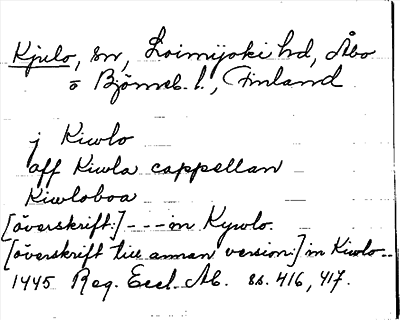 Kjulo, sn, Loimijoki hd, Åbo
o Björneb. l., Finland
j Kiwlo
aff Kiwla cappellan
Kiwloboa
[överskrift:] --- in Kywlo.
[överskrift till annan version:] in Kiwlo..
1445 Reg. Eccl. Ab. ss. 416, 417.